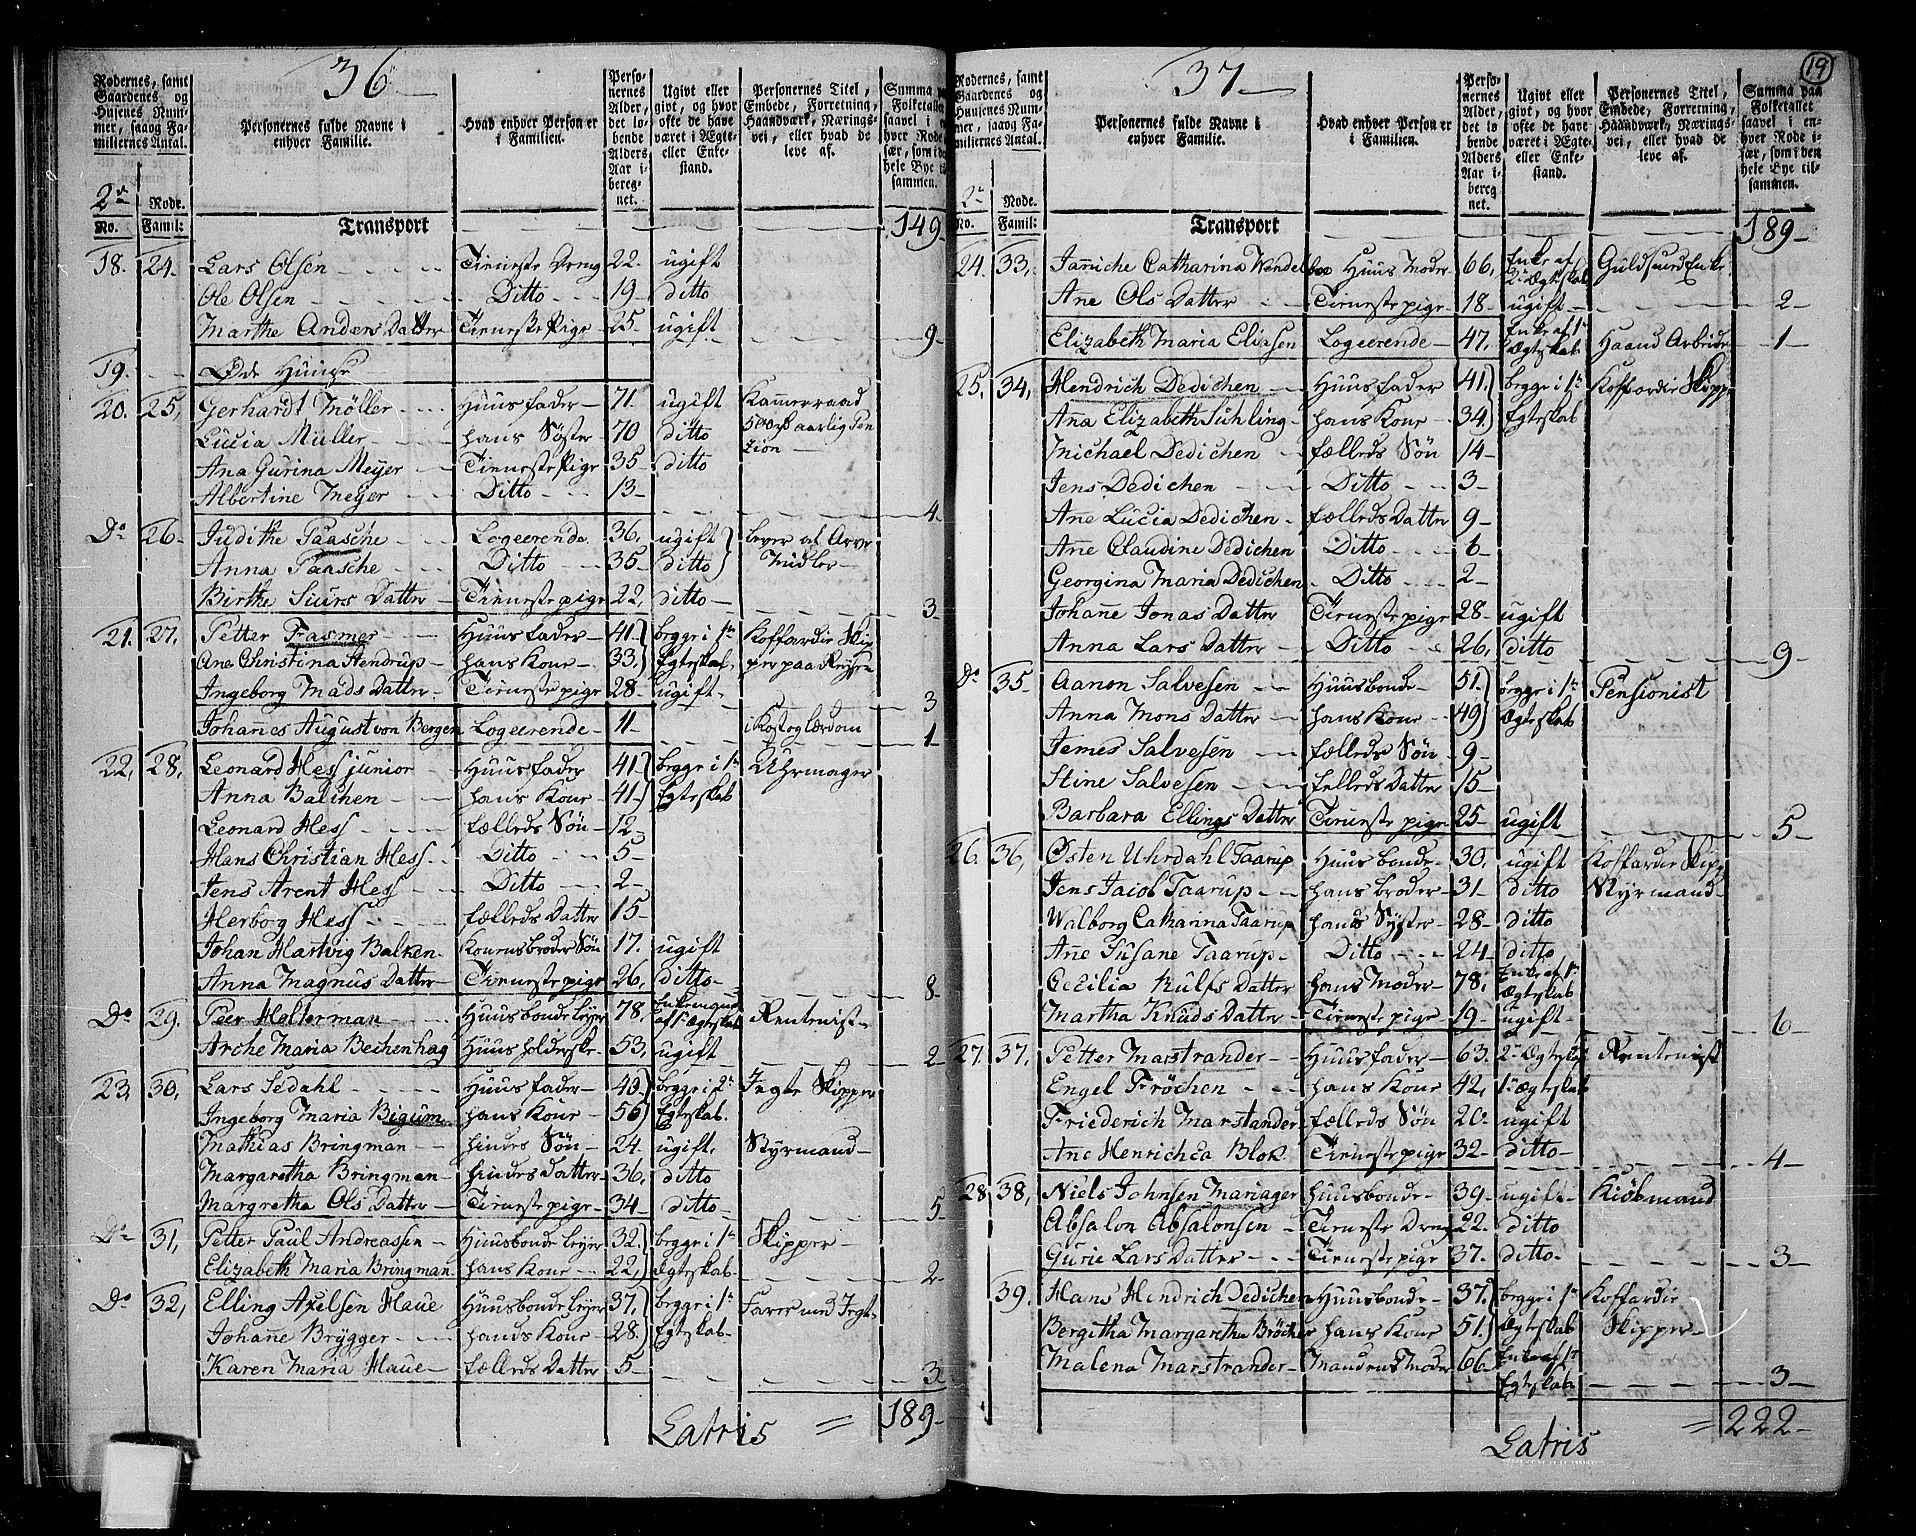 36
Rodernes, samt Gaardenes og Husenes Nummer, saavog Familiernes Antal. | Personernes fulde Navne i enhver Familie. | Hvad enhver Person er i Familien. | Personernes Alder, det lobende Alders Aar iberegnet. | Ugivt eller givt, og hvor ofte de have været i Ægte- eller Enkestand. | Personernes Titel, Embede, Forretning, Haandværk, Næringsvei, eller hvad de leve af. | Summa paa Folketallet saavel i enhver Rode især, som i den hele Bye tilsammen.
2de Rode.
No. Famil:
Transport 149
18. 24. Lars Olsen Tieneste Dreng 22. ugift
Ole Olsen Ditto 19 ditto
Marthe Anders Datter Tieneste Pige 25. ugift 9
19. Øde Huuse
20. 25, Gerhardt Möller Huusfader 71. ugift Kammerraad
Lucia Müller hans Söster 70 ditto aarlig Pen
Ana Gurina Meyer Tieneste Pige 35 ditto sion
Albertine Meyer Ditto 13 4
Do 26 Judithe Paasche Logeerende 36, ugift lever af Arve
Anna Paasche Ditto 35 ditto Midler
Birthe Siurs Datter Tieneste pige 22, ditto 3
21. 27. Petter Fasmer Huusfader 41. begge i 1te Koffardie Skip
Ane Christina Hendrup hans Kone 33, Egteskab. per paa Reysen
Ingeborg Mads Datter Tieneste pige 28 ugift 3
Johannes August von Bergen Logeerende 11 i Kost og lærdom 1
22, 28, Leonard Hess junior Huusfader 41 begge i 1te Uhrmager
Anna Balchen hans Kone 41 Egteskab
Leonard Hess fælleds Sön 12
Hans Christian Hess Ditto 5
Jens Arent Hess Ditto 2
Herborg Hess fælleds Datter 15
Johan Hartvig Balken Konens broder Sön 17. ugift
Anna Magnus Datter Tieneste pige 26, ditto 8
Do 29. Peer Holterman Huusbonde leyer 78, Enkemand af 1te Egteskab Rentenist
Arche Maria Bechenhag Huusholderske 53, ugift 2
23, 30, Lars Sedahl Huusfader 49 begge i 2de Jegte Skipper
Ingeborg Maria Bigum hans Kone 56 Egteskab.
Mathias Bringman hindes Sön 24 ugift. Styrmand
Margaretha Bringman hindes Datter 36, ditto
Margretha Ols Datter Tieneste pige 34 ditto 5
Do 31, Petter Paul Andreassen Huusbonde leyer 32. begge i 1te Skipper
Elizabeth Maria Bringman hans Kone 22, Ægteskab 2
Do 32, Elling Axelsen Haue Huusbonde leyer 37, begge i 1te Farer med Jegt
Johanne Brygger hands Kone 28. Egteskab
Karen Maria Haue fælleds Datter 5 3
Latris = 189
19
37
Rodernes, samt Gaardenes og Husenes Nummer, saavog Familiernes Antal. | Personernes fulde Navne i enhver Familie. | Hvad enhver Person er i Familien. | Personernes Alder, det lobende Alders Aar iberegnet. | Ugivt eller givt, og hvor ofte de have været i Ægte- eller Enkestand. | Personernes Titel, Embede, Forretning, Haandværk, Næringsvei, eller hvad de leve af. | Summa paa Folketallet saavel i enhver Rode især, som i den hele Bye tilsammen.
2de Rode.
No. Famil:
Transport 189
24. 33, Janniche Catharina Huus Moder 66, Enke af 2det Ægteskab Guldsmed Enke
Ane Ols Datter Tieneste pige 18 ugift 2
Elizabeth Maria Eliasen Logeerende 47, Enke af 1te Ægteskab Haand Arbeide 1
25, 34, Hendrich Dedichen Huusfader 41. begge i 1te Koffardie Skipper
Ana Elizabeth Suhling hans Kone 34 Egteskab
Michael Dedichen fælleds Sön 14
Jens Dedichen Ditto 3
Ane Lucia Dedichen fælleds Datter 9
Ane Claudine Dedichen Ditto 6
Georgina Maria Dedichen Ditto 2
Johanne Jonas Datter Tieneste pige 28 ugift
Anna Lars Datter Ditto 26, ditto 9
Do 35 Aanon Salvesen Huusbonde 51. begge i 1te Pensionist
Anna Mons Datter hans Kone 49 Ægteskab
Jemes Salvesen fælleds Sön 9
Stine Salvesen felleds Datter 15
Barbara Ellings Datter Tieneste pige 25 ugift 5
26. 36, Østen Uhrdahl Taarup Huusbonde 30. ugift Koffardie Skipp
Jens Jacob Taarup hans broder 31 ditto Styrmand
Walborg Catharina Taarup hans Syster 28 ditto
Ane Susane Taarup Ditto 24 ditto
Cecilia Rulfs Datter hans Moder 78, Enke af 1te Ægteskab
Martha Knuds Datter Tieneste pige 19 ugift 6
27. 37, Petter Marstrander Huusfader 63. 2de Ægteskab Rentenist
Engel Fröchen hans Kone 42, 1te Ægteskab
Friederich Marstander fælleds Sön 20. ugift
Ane Henrichea Blok Tieneste pige 32 ditto 4
28, 38, Niels Johnsen Mariager Huusbonde 39. ugift Kiöbmand
Absalon Absalonsen Tieneste Dreng 22. ditto
Gurie Lars Datter Tieneste pige 37. ditto 3
39. Hans Hendrich Dedichen Huusbonde 37. begge i 1te Koffardie
Bergitha Margaretha Bröcher hans Kone 51. Ægteskab Skipper
Malena Marstrander Mandens Moder 66 Enke af 1te Egteskab 3
Latris = 222